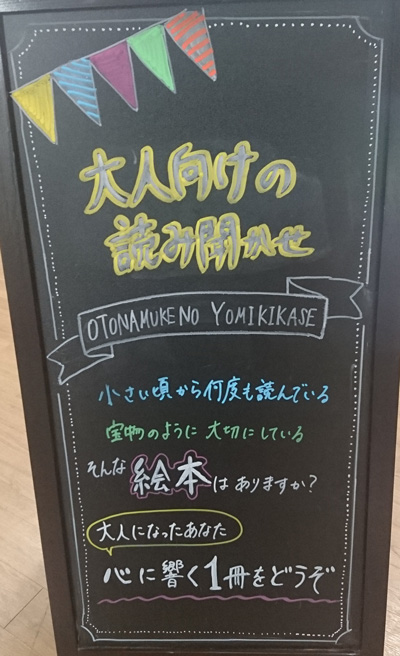 大人向けの
読み聞かせ
OTONAMUKENO YOMIKIKASE
小さい頃から何度も読んでいる
宝物のように大切にしている
そんな絵本はありますか?
大人になったあなた
心に響く1冊をどうぞ